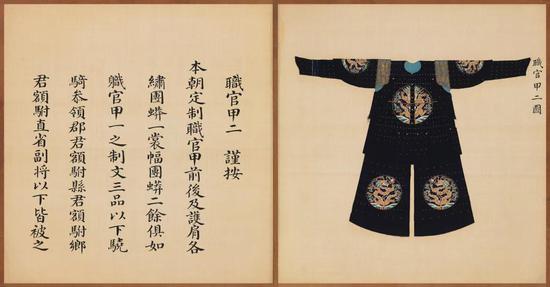 職官甲二圖
職官甲二 謹按
本朝定制職官甲前後及護肩各
繡團蟒一裳幅團蟒二餘俱如
職官甲一之制文三品以下驍
騎叅領郡君額駙縣君額駙鄉
君額駙直省副將以下皆被之